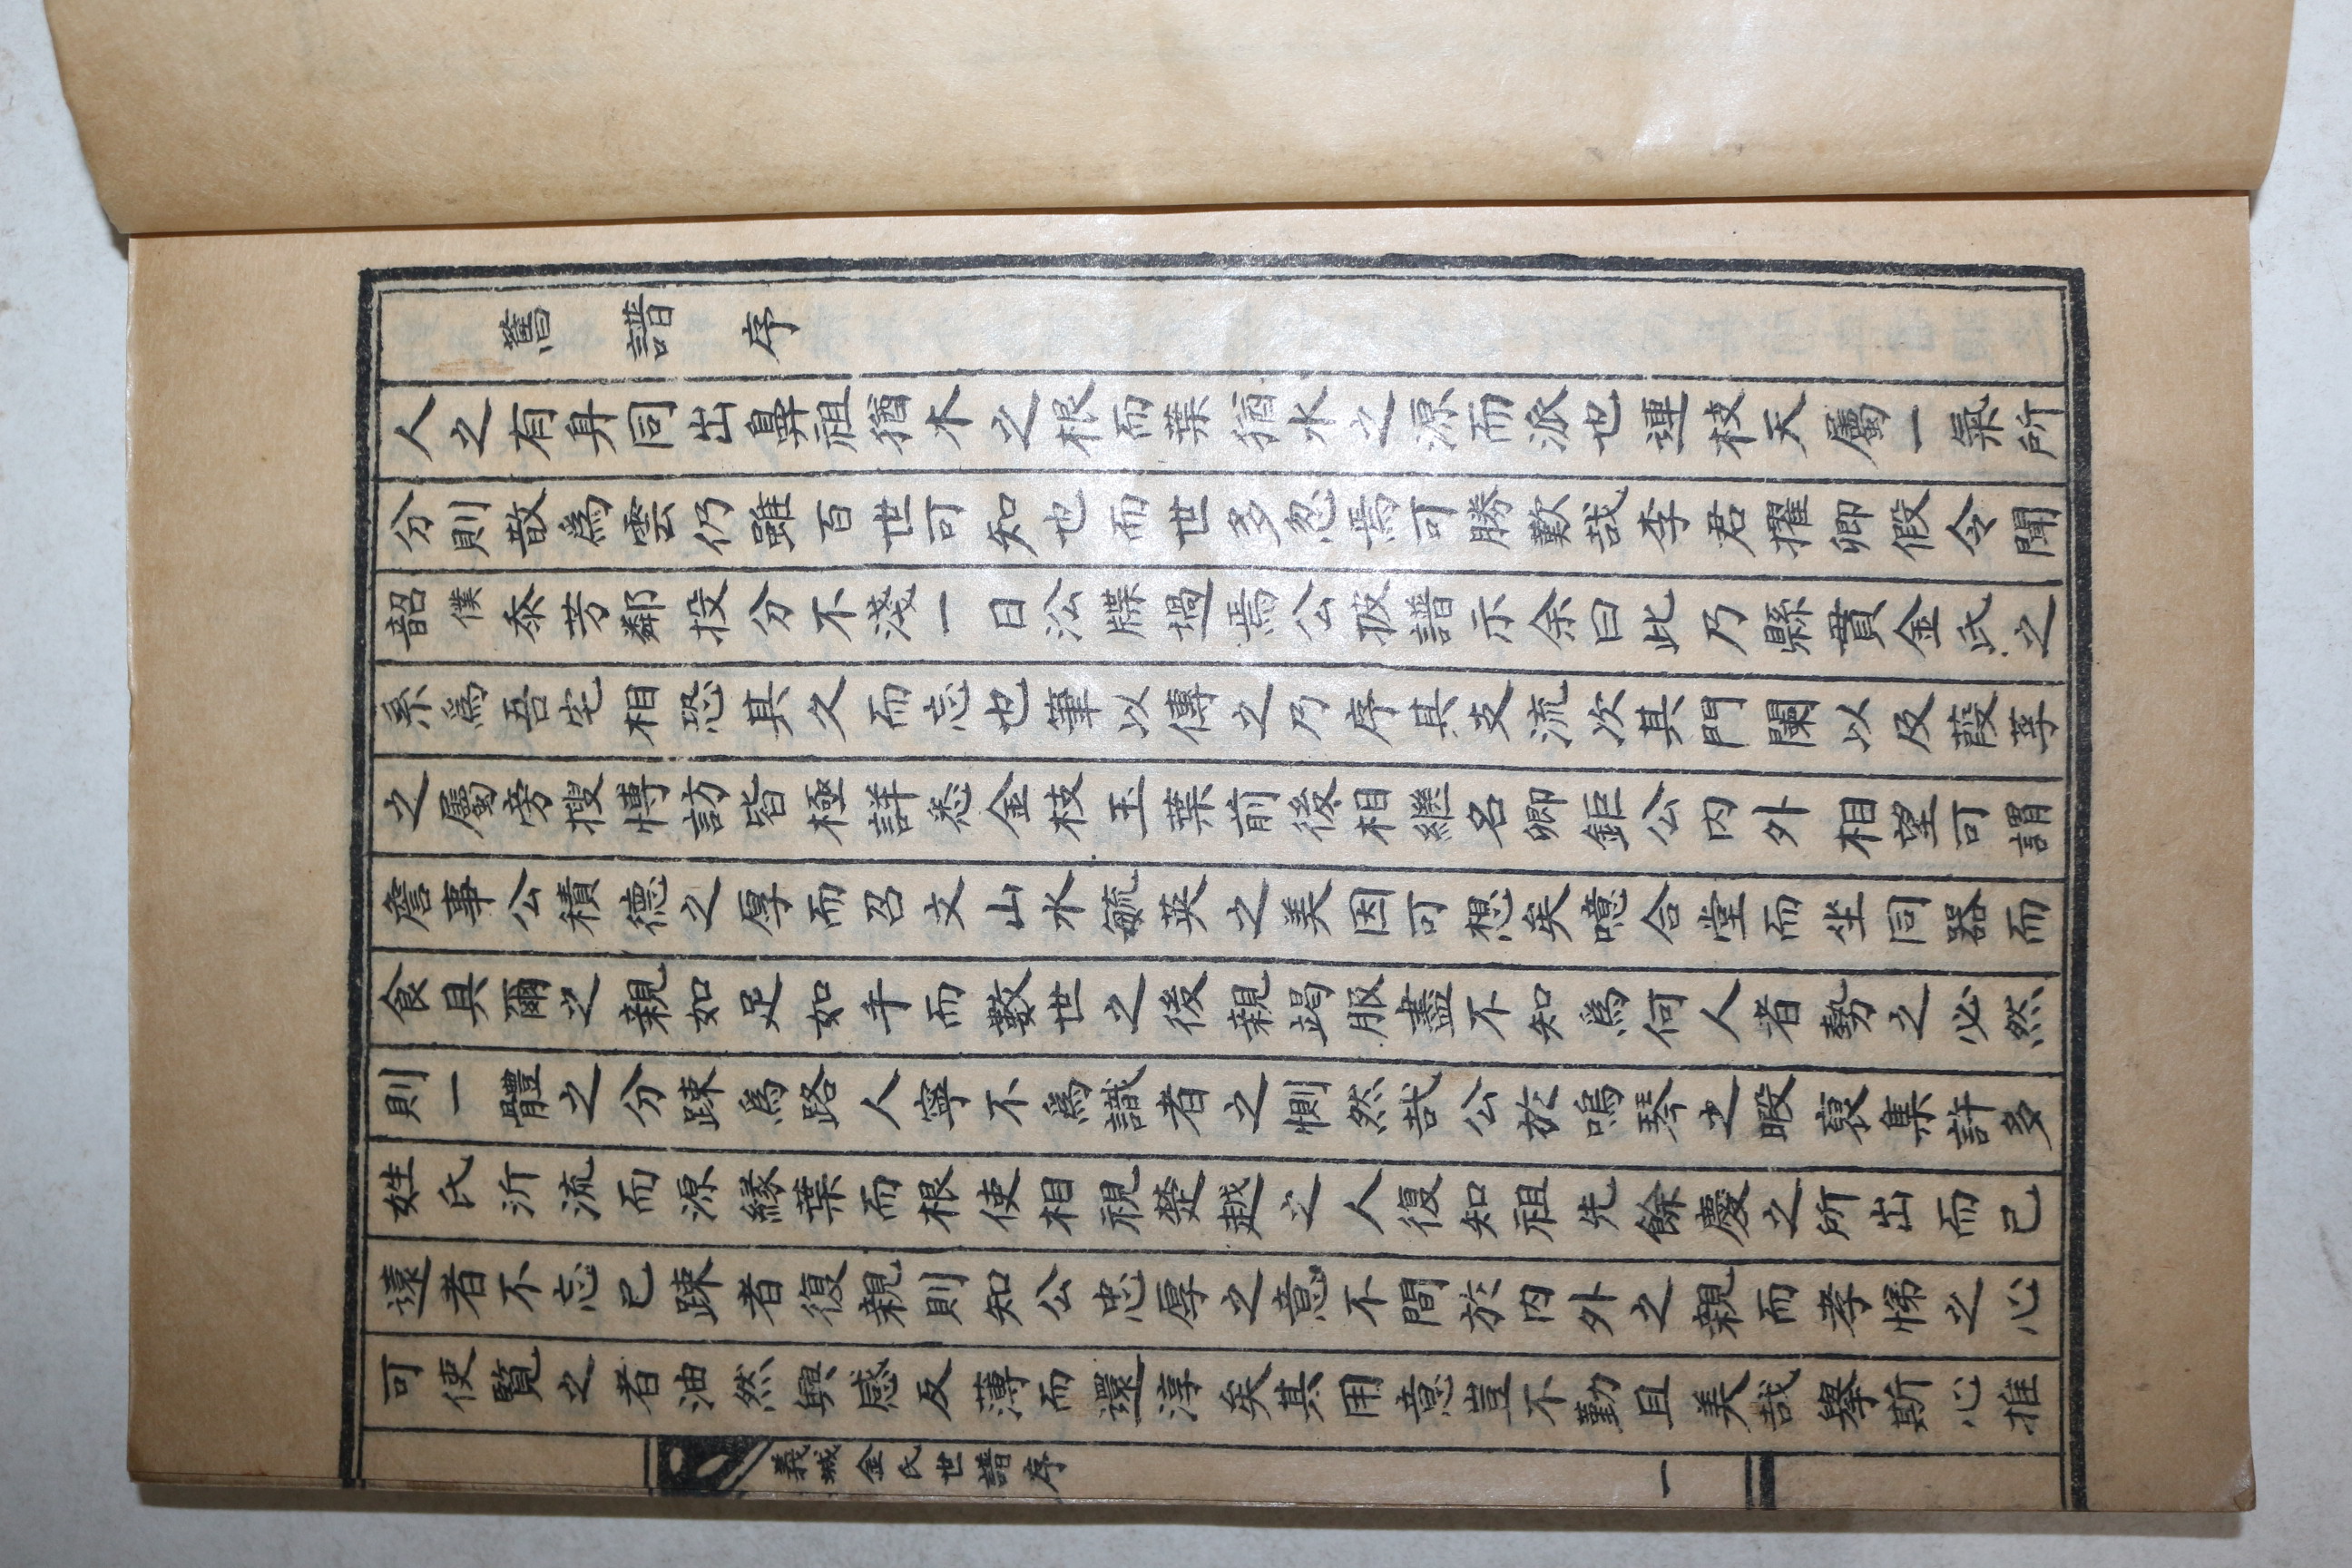 舊譜序
人之有身同出鼻祖猶木之根而葉猶水之源而派也連枝天屬一氣所
分則散爲雲仍雖百世可知也而世多忽焉可勝歎哉李君擢卿假令聞
韶僕忝芳鄰投分不淺一日公牒過焉公披譜示余曰此乃縣貫金氏之
系爲吾宅相恐其久而忘也筆以傳之乃序其支流次其門闌以及葭莩
之屬旁搜博訪皆極詳悉金枝玉葉前後相繼名卿鉅公内外相望可謂
詹事公積德之厚而召文山水毓英之美因可想矣噫合堂而坐同器而
食具爾之親如足如手而數世之後親竭服盡不知爲何人者勢之必然
則一體之分踈爲路人寧不爲識者之惻然哉公於鳴琴之暇裒集許多
姓氏泝流而源緣葉而根使相視楚越之人復知祖先餘慶之所出而已
遠者不忘已踈者復親則知公忠厚之意不間於内外之親而孝悌之心
可使覽之者油然興感反薄而還淳矣其用意豈不勤且美哉擧斯心推
義城金氏世譜序 一